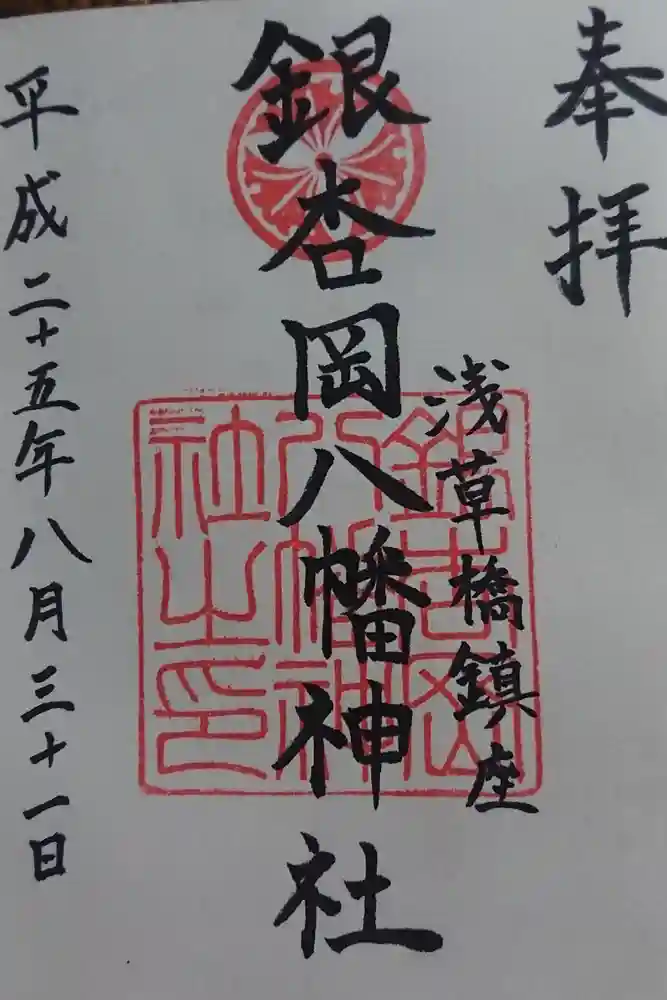 奉拝
浅草橋鎮座
銀杏岡八幡神社
平成二十五年八月三十一日
銀杏岡
八幡神
社之印